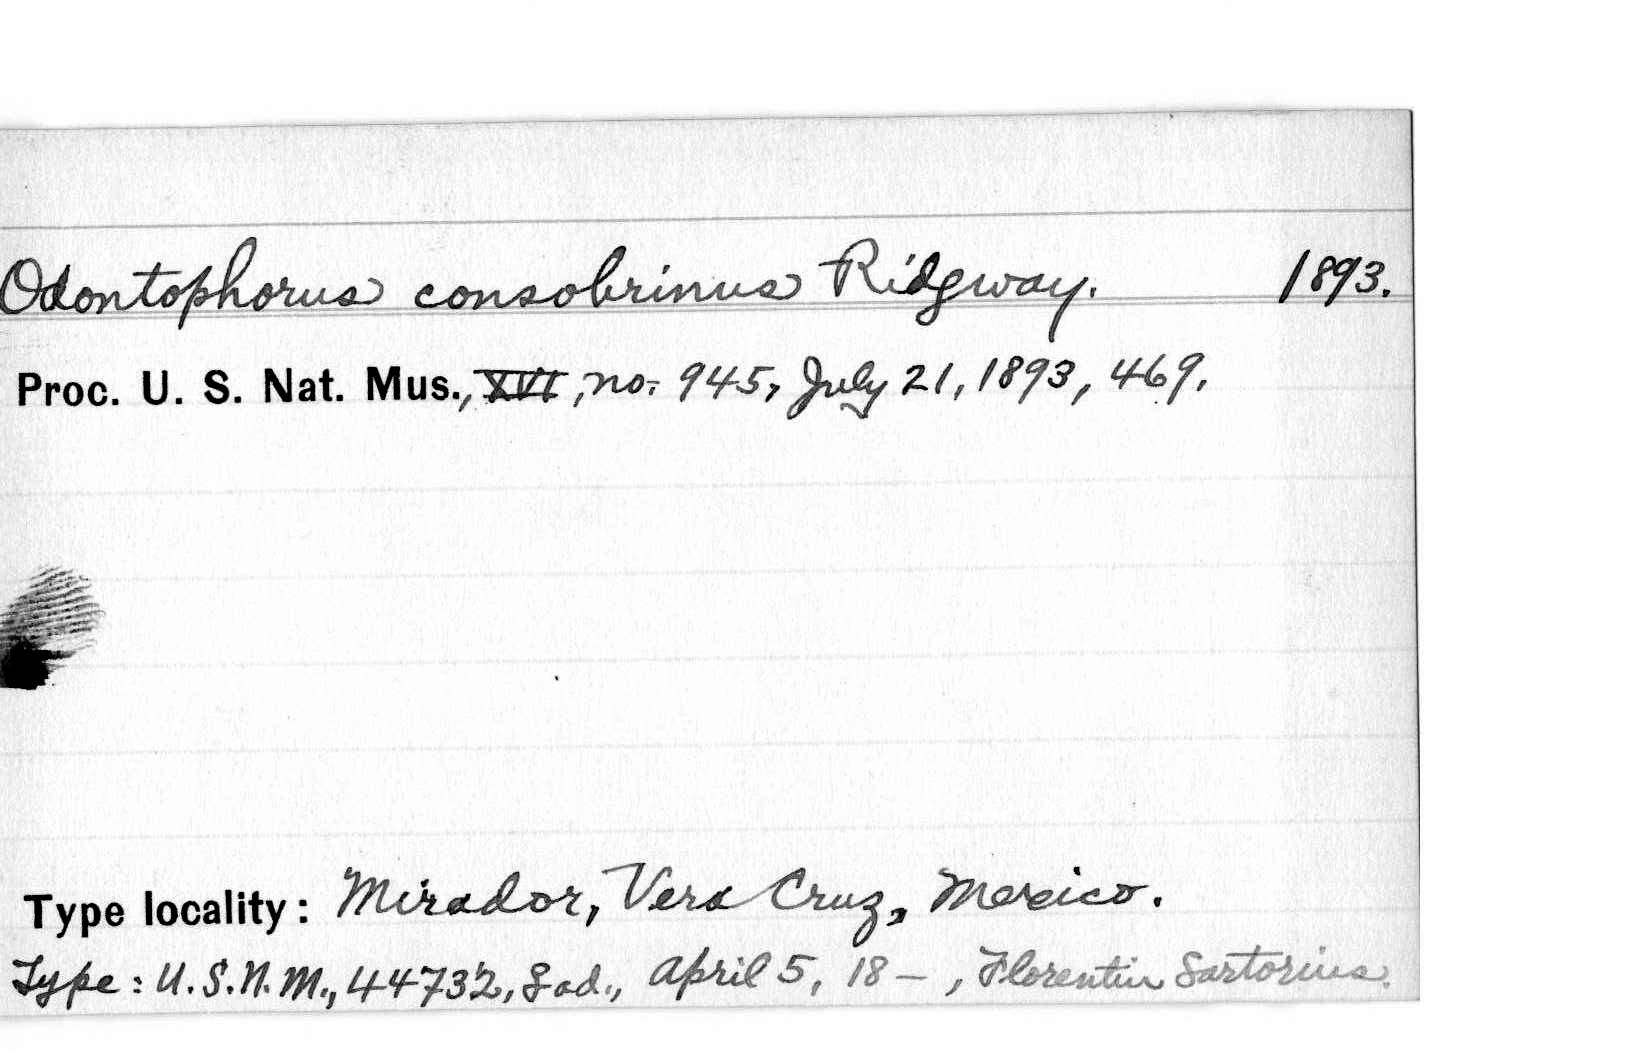 Odontophorus consobrinus Ridgway. 1893.
Proc. U. S. Nat. Mus., XVI, no. 945, July 21, 1893, 469.
Type locality: Mirador, Vera Cruz, Mexico.
Type: U.S.N.M., 44732, ♀ ad., April 5, 18—, Florentin Sartorius.